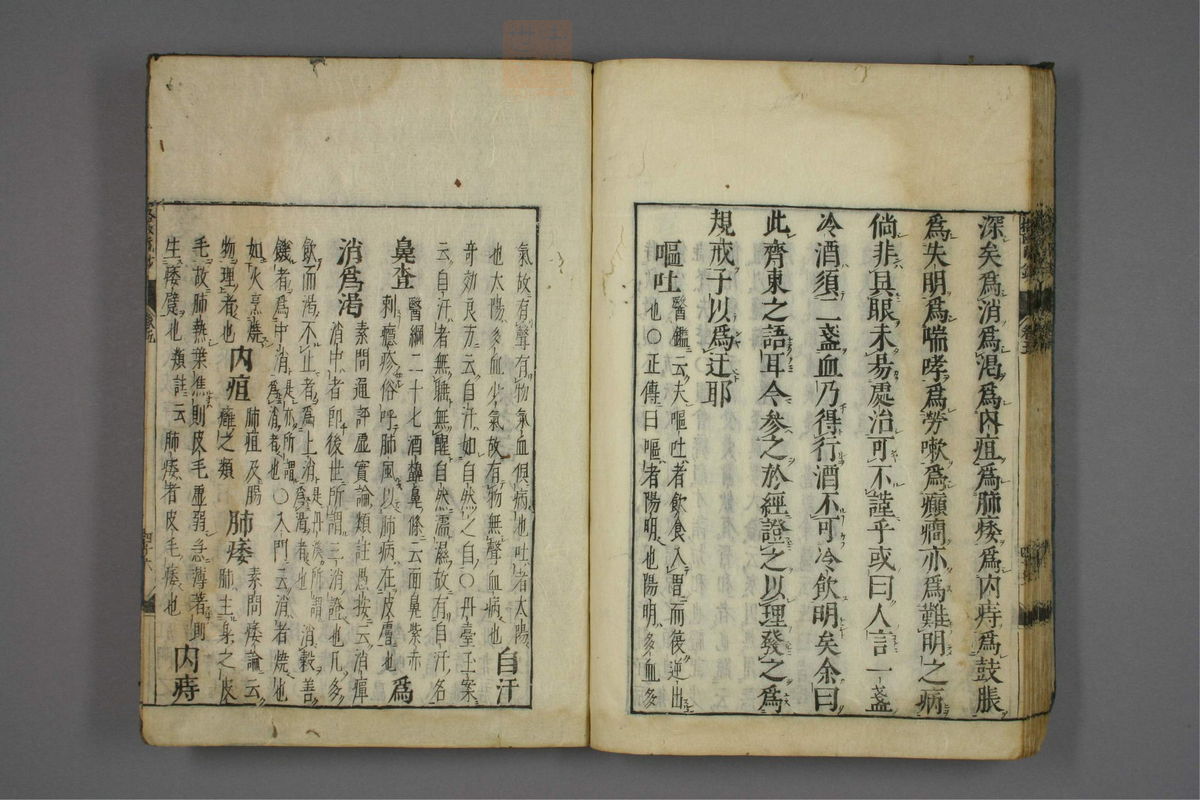 深矣爲消爲渇爲内疽爲肺痿爲内痔爲鼓脹
爲失明爲喘哮爲勞嗽爲癲癇亦爲難明之病
倘非具眼未易處治可不謹乎或曰人言一盞
冷酒須二盞血乃得行酒不可冷飲明矣余曰
此齊東之語耳今參之於經證之以理發之爲
規戒子以爲迂耶
嘔吐
醫鑑云夫嘔吐者飲食入胃而後逆出
也〇正傳曰嘔者陽明也陽明多血多
氣故有聲有物氣血俱病也吐者太陽
也太陽多血少氣故有物無聲血病也
自汗
奇効良方云自汗如自然之自〇丹臺玉案
云自汗者無聽無醒自然濡濕故有自汗名
鼻査
醫綱二十七酒齇鼻條云面鼻紫赤
刺癮疹俗呼肺風以肺病在皮膚也
爲
消爲渇
素問通評虚實論類註馮按云消癉
消中者即後世所謂三消證也凡多
飲而渇不止者爲上消是丹溪所謂爲渇者也
消穀善
饑者爲中消是亦所謂爲消者也
〇入門云消者燒也
如火烹燒
物理者也
内疽
肺疽及腸
癰之類
肺痿
素問痿論云
肺主身之皮
毛故肺熱葉焦則皮毛虚弱急薄著則
生痿躄也
類註云肺痿者皮毛痿也
内痔